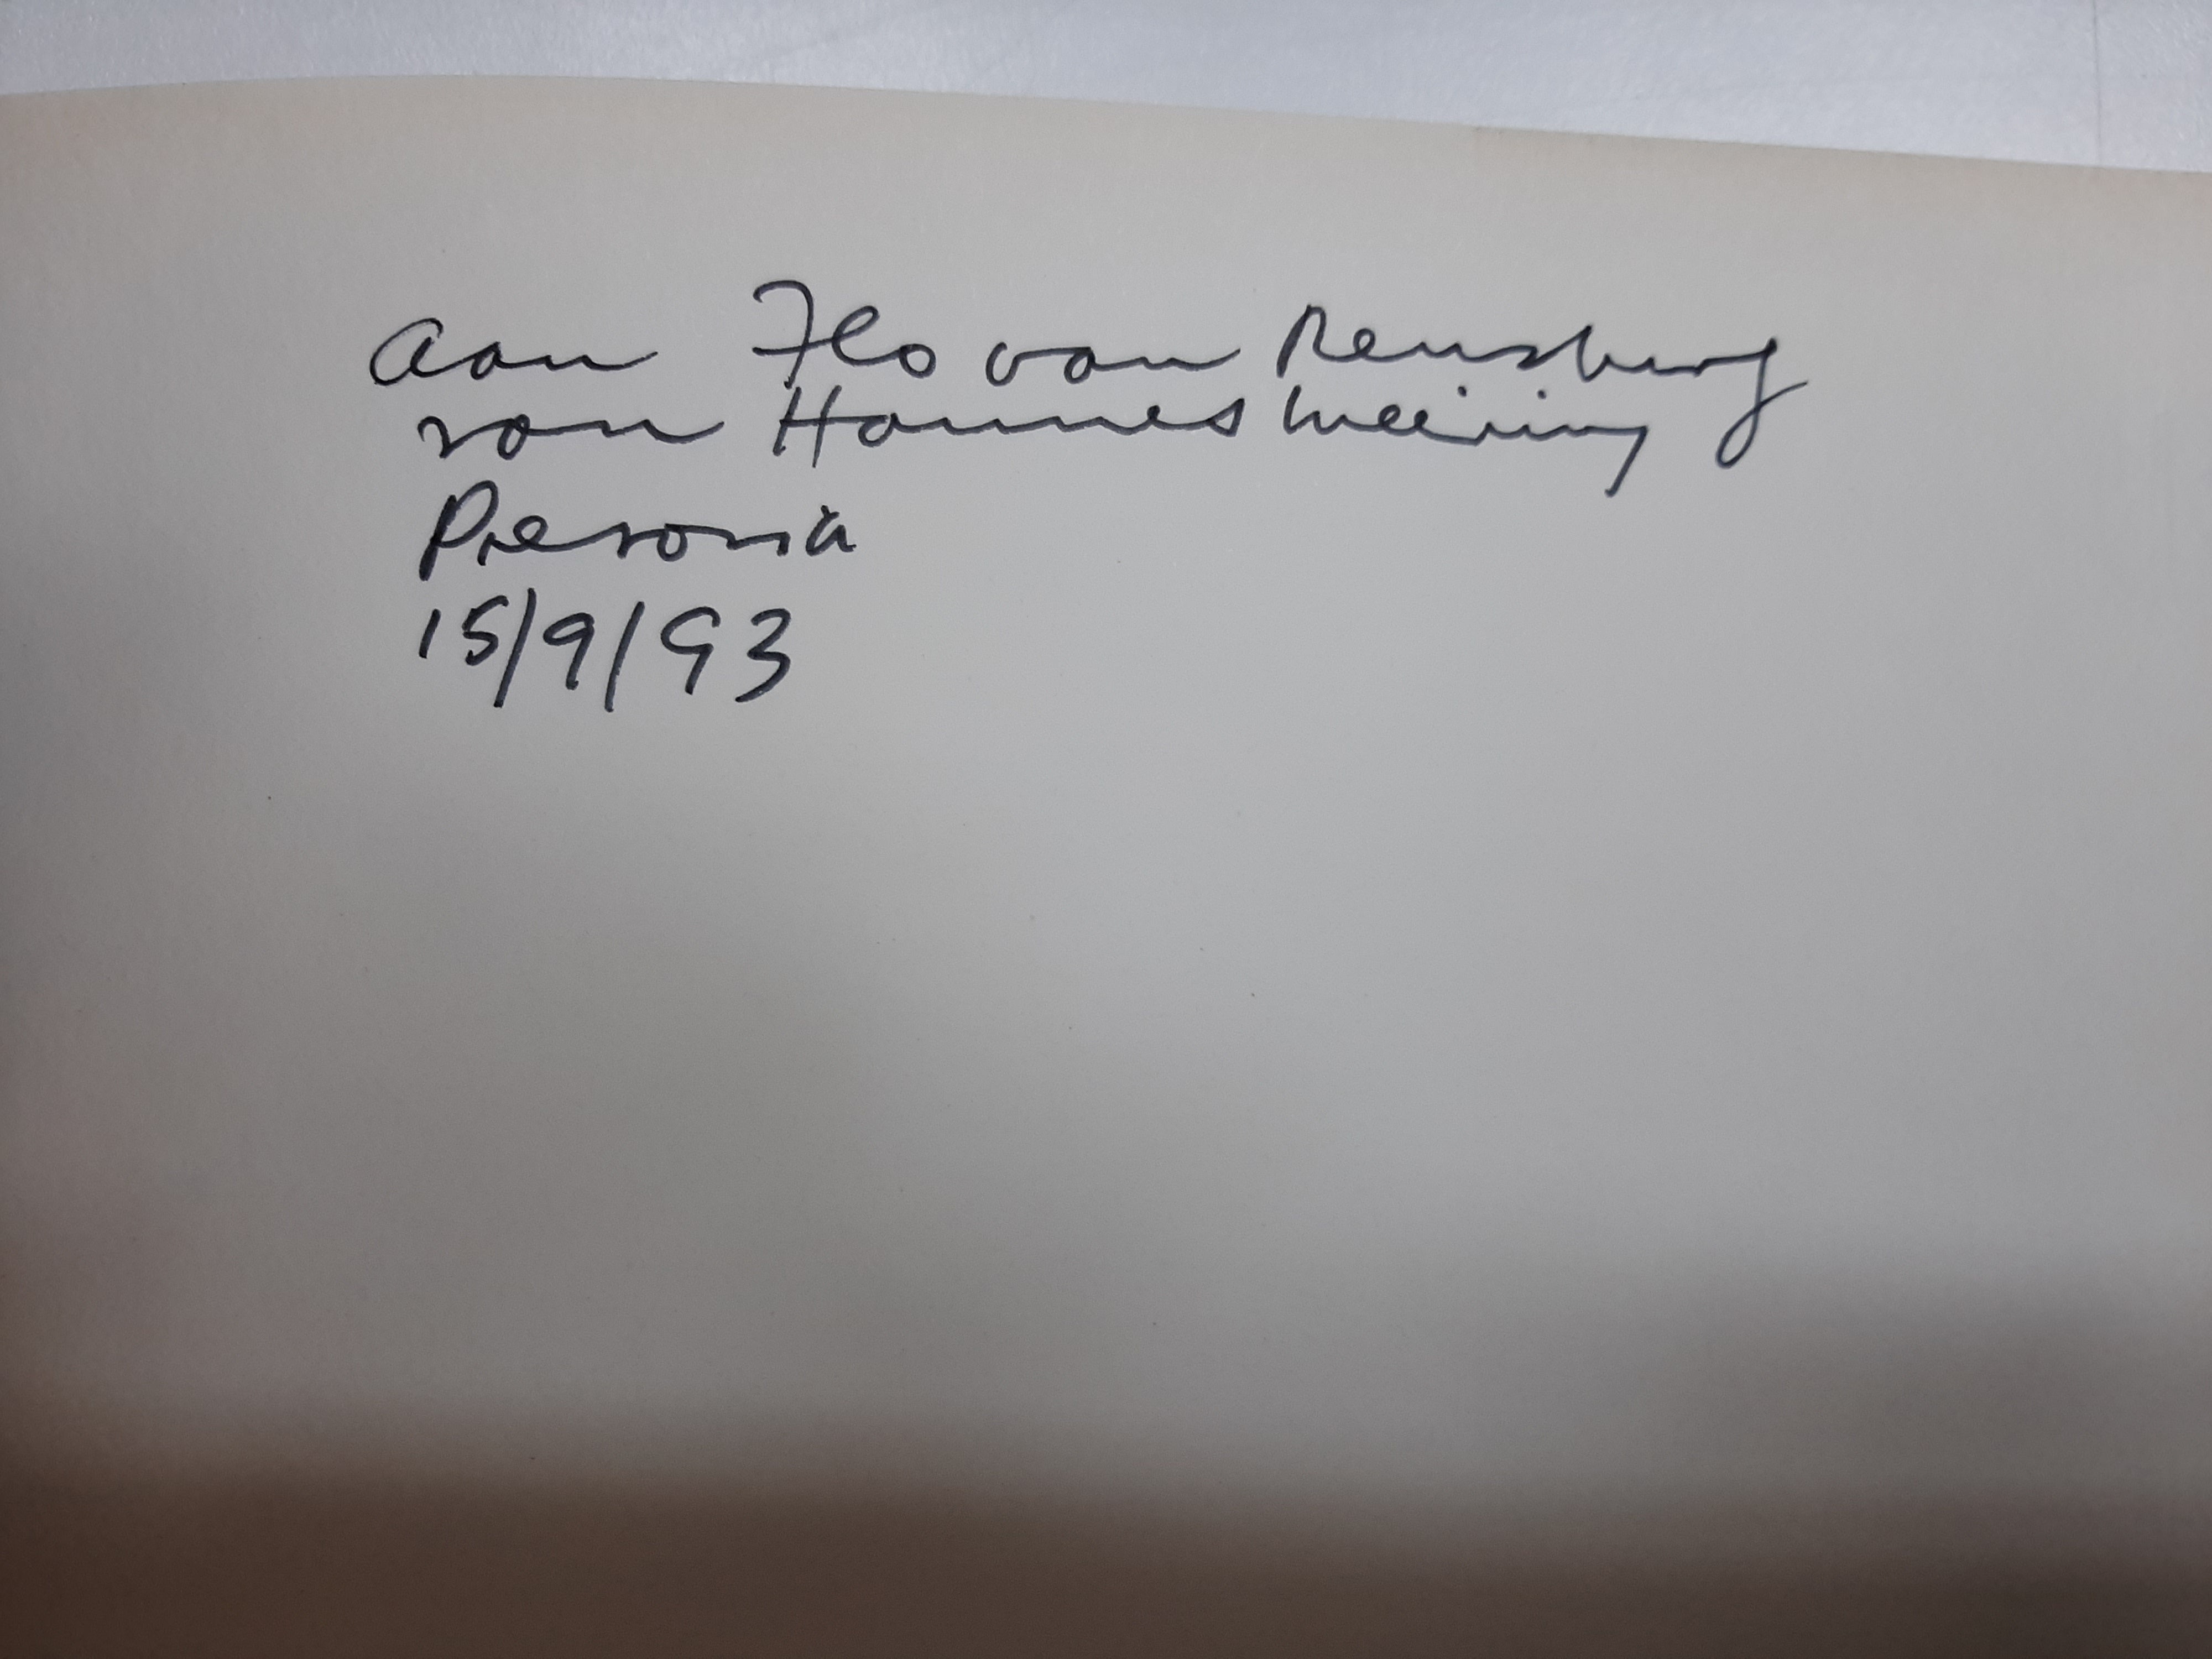 Aan Flo van Rensburg
van Hannes Meiring
Pretoria
15/9/93